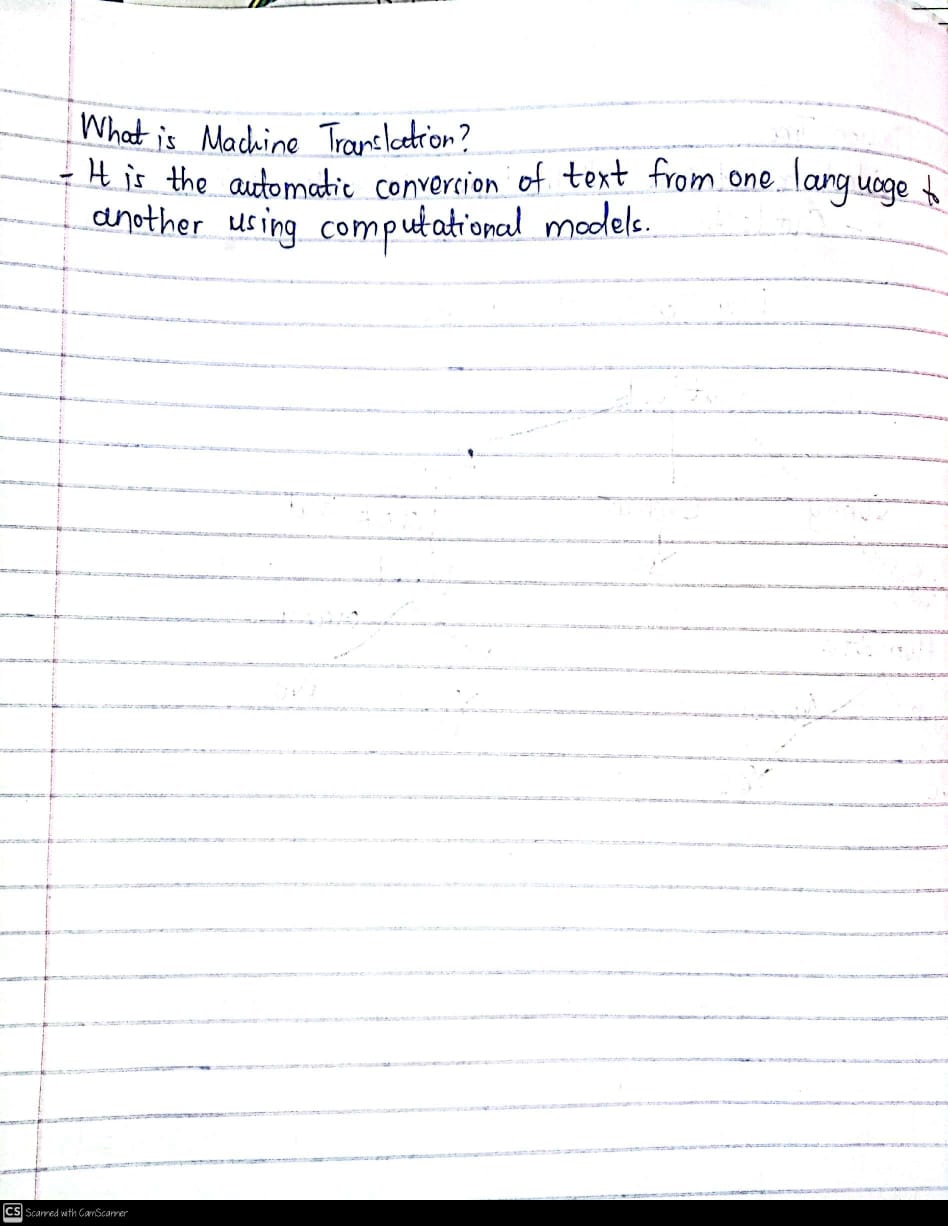 What is Machine Translation?
- It is the automatic conversion of text from one language to
another using computational models.
CS Scanned with CamScanner